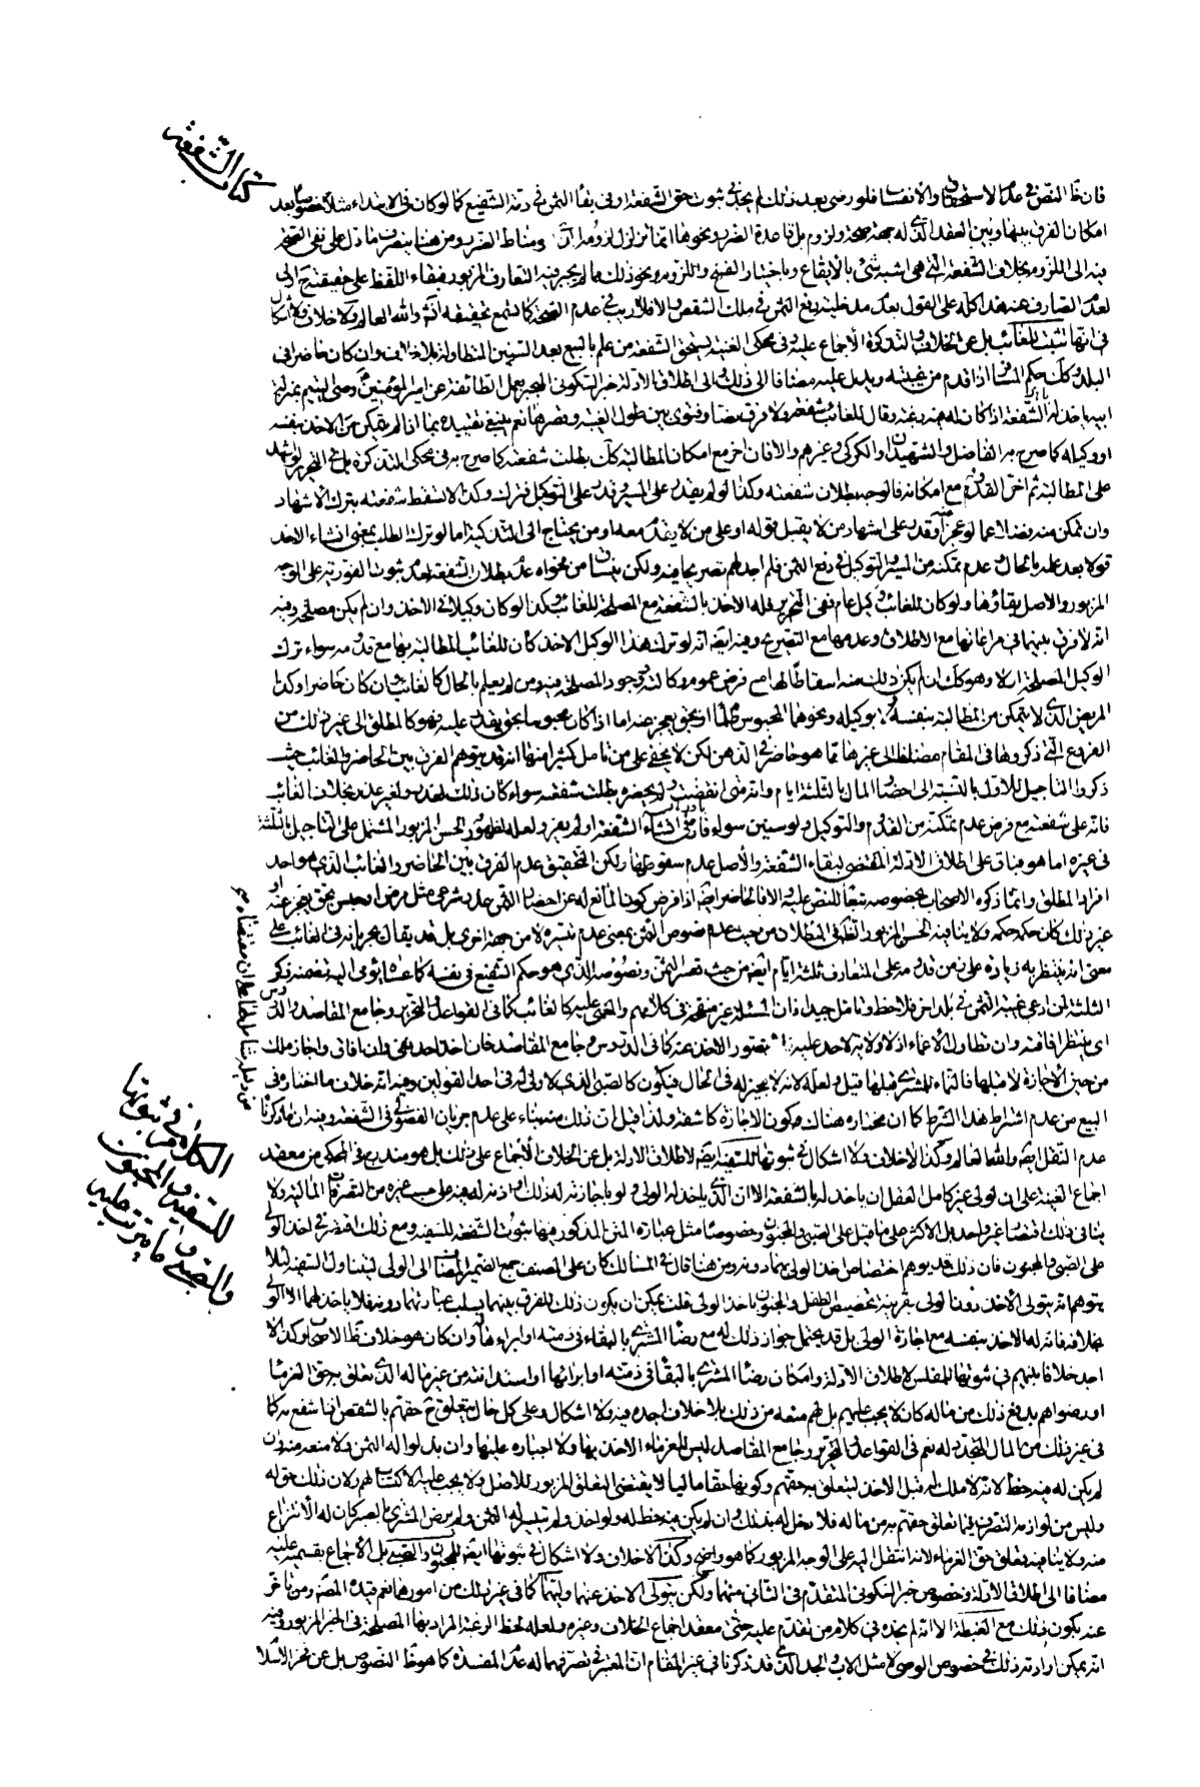 كتاب الشفعة
فان ظ النص في عدم الاستحقاق والانفساخ فلو رضى بعد ذلك لم يجد في ثبوت حق الشفعة او في بقاء الثمن في ذمة الشفيع كما لو كان في الابتداء مثلا خصوصا بعد
امكان الفرق بينها وبين العقد الذى له جهة صحة ولزوم بل قاعدة الضرر ونحوها انما تزلزل لزومه ومناط الضرر ومن هنا ينصرف ما دل على نفى الصحة
فيه الى اللزوم بخلاف الشفعة التي هي اشبه شئ بالايقاع وباختيار الفسخ واللزوم ونحو ذلك مما لم يجر فيه التعارف المزبور فبقاء اللفظ على حقيقته ح اولى
لعدم الصارف عنه هذا كله على القول بعدم مدخلية دفع الثمن في ملك الشقص والا فلا ريب في عدم الصحة كما تسمع تحقيقه انش والله العالم ولا خلاف ولا اشكال
في انها تثبت للغائب بل عن الخلاف والتذكرة الاجماع عليه وفي محكى الغنية يستحق الشفعة من علم بالبيع بعد السنين المتطاولة بلا خلاف وان كان حاضرا في
البلد وكك حكم المسافر اذا قدم من غيبته ويدل عليه مضافا الى ذلك والى اطلاق الادلة خبر السكونى المنجبر بعمل الطائفة عن امير المؤمنين وصى اليتيم بمنزلة
ابيه ياخذ له الشفعة اذا كان له فيه رغبة وقال للغائب شفعة ولا فرق نصا وفتوى بين طول الغيبة وقصرها نعم ينبغي تقييده بما اذا لم يتمكن من الاخذ بنفسه
او وكيله كما صرح به الفاضل والشهيدان والكركى وغيرهم والا فان اخر مع امكان المطالبة كك بطلت شفعته كما صرح به في محكى التذكرة بل في التحرير لو اشهد
على المطالبة ثم اخر القدوم مع امكانه فالوجه بطلان شفعته وكذا لو لم يقدر على المسير وقدر على التوكيل فترك وكذا لا تسقط شفعته بترك الاشهاد
وان تمكن منه وفي الاعمال لو عجز عنه او قدر على اشهاد من لا يقبل قوله او على من لا يقدم معه او من يحتاج الى التذكية اما لو ترك الطلب بمعنى انشاء الاخذ
قولا بعد علمه بالحال وعدم تمكنه من المسير والتوكيل في دفع الثمن فلم اجد لهم تصريحا فيه ولكن ينساق من فحواه عدم بطلان الشفعة لعدم ثبوت الفورية على الوجه
المزبور والاصل بقاؤها ولو كان للغائب وكيل عام ففي التحرير فله الاخذ بالشفعة مع المصلحة للغائب وكذا لو كان وكيلا في الاخذ وان لم يكن مصلحة وفيه
انه لا فرق بينهما في مراعاتها مع الاطلاق وعدمها مع التصريح وفيه ايضا انه لو ترك هذا الوكيل الاخذ كان للغائب المطالبة بها مع قدومه سواء ترك
الوكيل المصلحة او لا وهو كك ان لم يكن ذلك منه اسقاطا لها مع فرض عموم وكالته ووجود المصلحة فيه ومن لم يعلم بالحال كالغائب وان كان حاضرا وكذا
المريض الذى لا يتمكن من المطالبة بنفسه ولا بوكيله ونحوهما المحبوس ظلما او بحق يعجز عنه اما اذا كان محبوسا بحق يقدر عليه فهو كالمطلق الى غير ذلك من
الفروع التي ذكروها في المقام مضافا الى غيرها مما هو حاضر في الذهن لكن لا يخفى على من تامل كثيرا منها انه قد يتوهم الفرق بين الحاضر والغائب حيث
ذكروا التاجيل للاول بالنسبة الى احضار المال بالثلثة ايام وانه متى انقضت ولم يحضره بطلت شفعته سواء كان ذلك لعذر او لغير عذر بخلاف الغائب
فانه على شفعته مع فرض عدم تمكنه من القدوم والتوكيل ولو سنين سواء بادر الى انشاء الشفعة او لم يبادر ولعله لظهور الحسن المزبور المشتمل على التاجيل بالثلثة
في غيره اما هو فباق على اطلاق الادلة المقتضى لبقاء الشفعة والاصل عدم سقوطها ولكن التحقيق عدم الفرق بين الحاضر والغائب الذى هو احد
افراد المطلق وانما ذكره الاصحاب بخصوصه تبعا للنص عليه والا فالحاضر ايضا اذا فرض كون المانع له عن احضار الثمن عذر شرعى مثل مرض او حبس بحق يعجز عنه او
غير ذلك كان حكمه حكمه ولا ينافيه الحسن المزبور الظاهر في البطلان من حيث عدم خصوص الثمن بمعنى عدم تيسره لا من جهة اخرى بل قد يقال بجريانه في الغائب على
معنى انه ينتظر به زيادة على زمن قدومه على المتعارف ثلثة ايام ايضا من حيث تعسر الثمن وخصوصه الذى هو حكم الشفيع في نفسه كما عساه يومى اليه تضمنه ذكر
الثلثة لمن ادعى غيبة الثمن في بلد اخر فلاحظ وتامل جيدا فان المسئلة غير منقحة في كلامهم والمغمى عليه كالغائب كما في القواعد والتحرير وجامع المقاصد والدروس
اى ينتظر افاقته وان تطاول الاغماء اذ لا ولاية لاحد عليه ليتصور الاخذ عنه كما في الدروس وجامع المقاصد فان اخذ احد لغى وان افاق واجاز ملك
من حين الاجازة لا قبلها فالنماء للمشترى قبلها قيل ولعله لانه لا مجيز له في الحال فيكون كالصبى الذى لا ولى له في احد القولين وفيه انه خلاف ما اختاره في
البيع من عدم اشتراط هذا الشرط كما ان مختاره هناك كون الاجازة كاشفة ولذا قيل ان ذلك منه بناء على عدم جريان الفضولى في الشفعة وفيه ان ما ذكرناه
عدم النقل ايضا والله العالم وكذا لا خلاف ولا اشكال في ثبوتها للسفيه ايضا لاطلاق الادلة بل عن الخلاف الاجماع على ذلك بل هو مندرج في المحكى من معقد
اجماع الغنية على ان لولى غير كامل العقل ان ياخذ له بالشفعة الا ان الذى ياخذ له الولى ولو باجازته له ذلك او اذنه له فيه على حسب غيره من التصرفات المالية ولا
ينافى ذلك اقتصار غير واحد بل الاكثر على ما قيل على الصبى والمجنون وخصوصا مثل عبارة المتن المذكور فيها ثبوت الشفعة للسفيه ومع ذلك اقتصر في اخذ الولى
على الصبى والمجنون فان ذلك قد يوهم اختصاص اخذ الولى بهما دونه ومن هنا قال في المسالك كان على المصنف جمع الضمير المضاف الى الولى ليتناول السفيه لئلا
يتوهم انه يتولى الاخذ دون الولى بقرينة تخصيص الطفل والمجنون باخذ الولى قلت يمكن ان يكون ذلك للفرق بينهما بسلب عبارتهما دونه فلا ياخذ لهما الا الولى
بخلافه فانه له الاخذ بنفسه مع اجازة الولى بل قد يحتمل جواز ذلك له مع رضا المشترى بالبقاء في ذمته او ابراءه لها وان كان هو خلاف ظ الاصحاب وكذا لا
اجد خلافا بينهم في ثبوتها للمفلس لاطلاق الادلة وامكان رضا المشترى بالبقاء في ذمته او ابرائها او استدانته من غير ماله الذى تعلق به حق الغرماء
او رضواهم بدفع ذلك من ماله كان لا يجب عليهم بل لهم منعه من ذلك بلا خلاف اجده فيه ولا اشكال وعلى كل حال يتعلق ح حقهم بالشقص اذا شفع به كما
في غير ذلك من المال المتجدد له نعم في القواعد والتحرير وجامع المقاصد ليس للغرماء الاخذ بها ولا اجباره عليها وان بذلوا له الثمن ولا منعه منه وان
لم يكن له فيه حظ لانه لا ملك له قبل الاخذ ليتعلق به حقهم وكونها حقا ماليا لا يقتضى التعلق المزبور للاصل ولا يجب عليه الاكتساب لهم لان ذلك حق له
وليس من لوازمه التصرف فيما تعلق حقهم به من ماله فلا دخل له بذلك وان لم يكن فيه حظ له ولو اخذ ولم يتيسر له الثمن ولم يرض المشترى بالصبر كان له الانتزاع
منه ولا ينافيه تعلق حق الغرماء لانه انتقل اليه على الوجه المزبور كما هو واضح وكذا لا خلاف ولا اشكال في ثبوتها ايضا للمجنون والصبى بل الاجماع بقسميه عليه
مضافا الى اطلاق الادلة وخصوص خبر السكونى المتقدم في الثانى منهما ولكن يتولى الاخذ عنهما وليهما كما في غير ذلك من امورهما نعم قيده المصنف ومن تاخر
عنه بكون ذلك مع الغبطة الا انه لم نجده في كلام من تقدم عليه حتى معقد اجماع الخلاف وغيره ولعله لحظ الرغبة المراد بها المصلحة في الخبر المزبور وفيه
انه يمكن ارادته ذلك في خصوص الوصى لا مثل الاب والجد الذى قد ذكرنا في غير المقام ان المعتبر في تصرفهما له عدم المفسدة كما هو ظ النصوص بل عن فخر الاسلام
الكلام في ثبوتها
للسفيه والمجنون
والصبى وما يترتب عليه